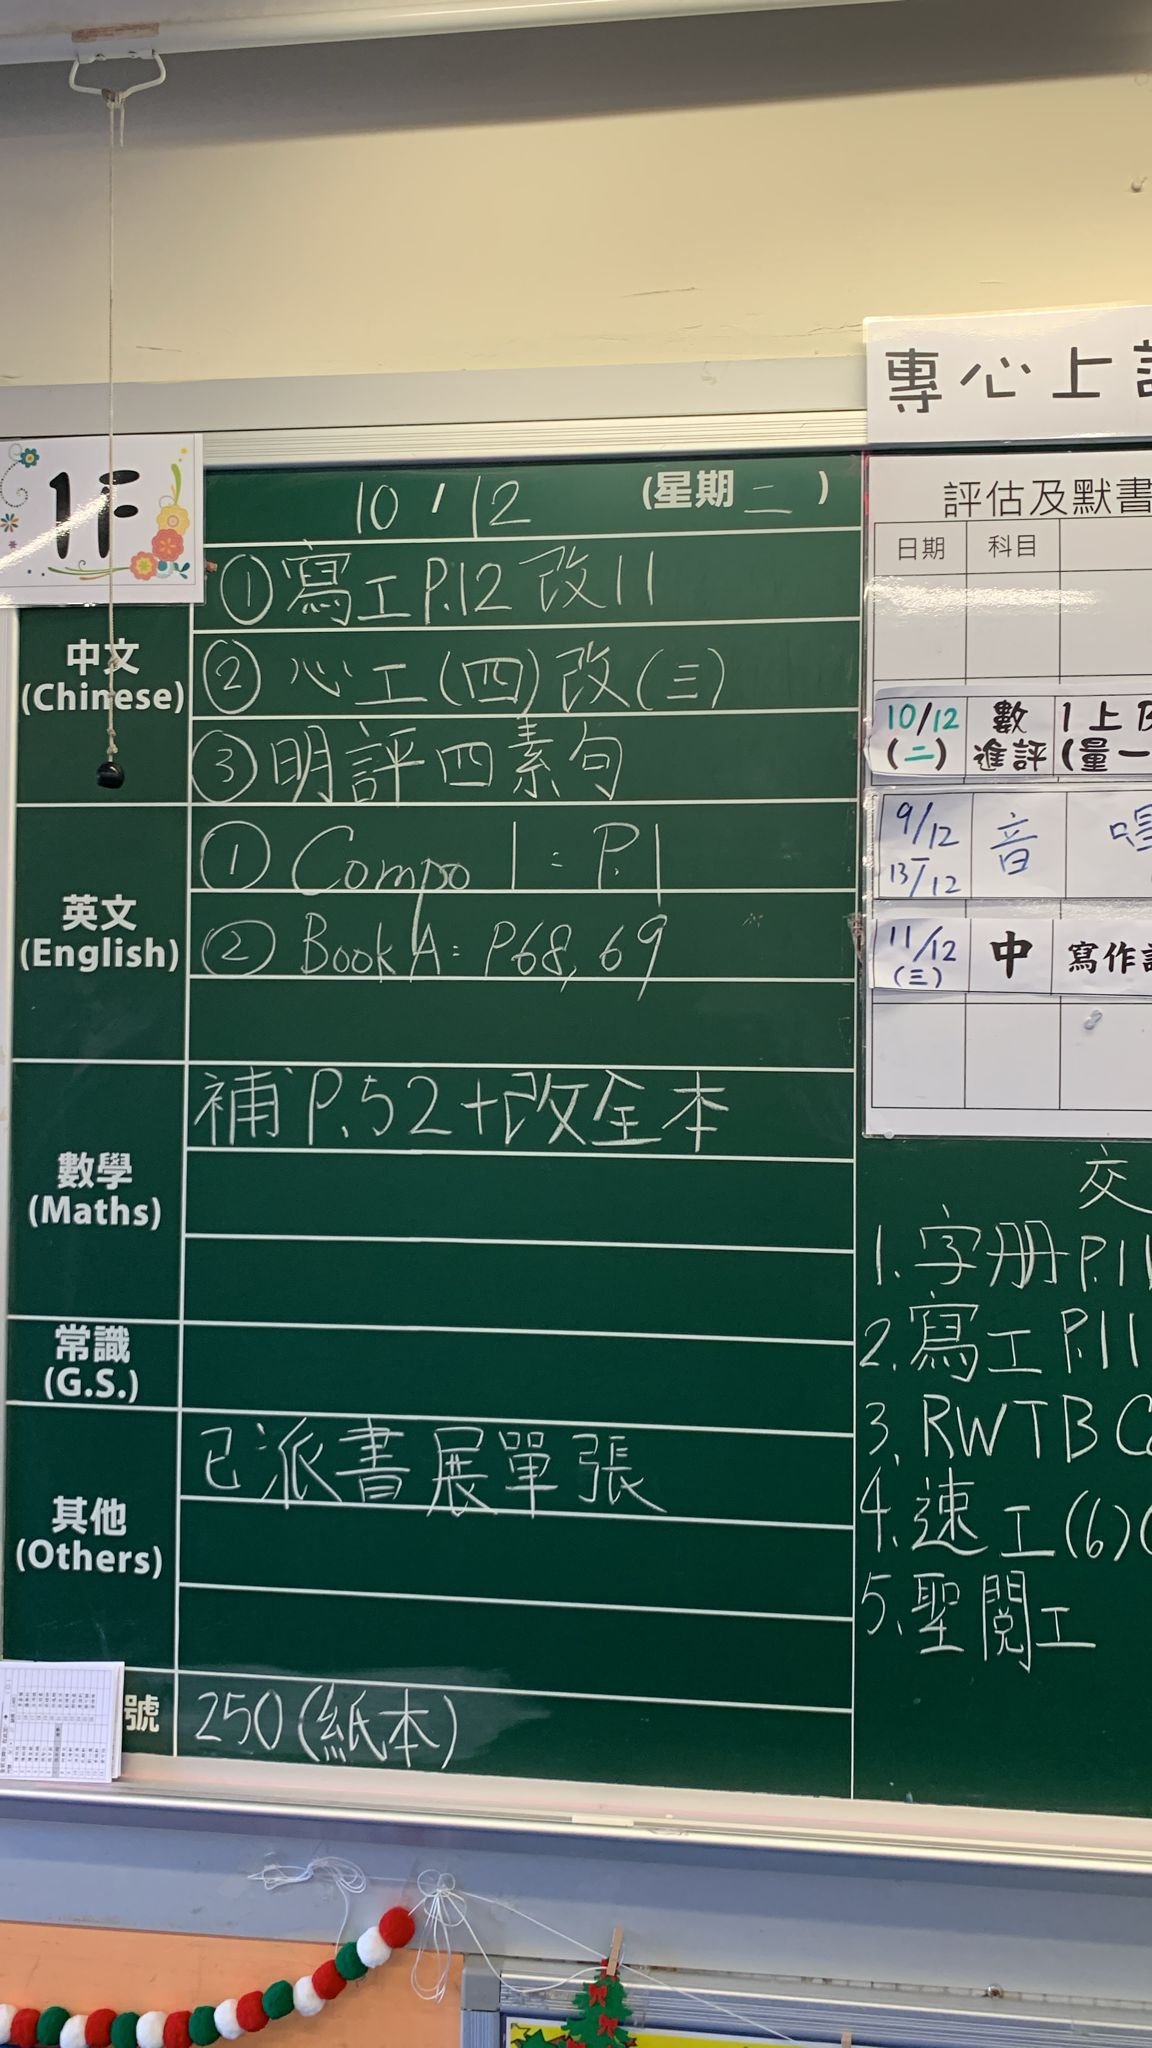 1F
10/12 (星期二)
中文
(Chinese)
① 寫工P.12 改11
② 心工(四)改(三)
③ 明評四素句
英文
(English)
① Compo 1: P.1
② Book A: P.68, 69
數學
(Maths)
補P.52+改全本
常識
(G.S.)
其他
(Others)
已派書展單張
號
250(紙本)
專心上
評估及默書
日期 科目
10/12
(二)
數
進評
1上B
(量一
9/12
13/12
音
唱
11/12
(三)
中
寫作
交
1. 字册P.11
2. 寫工P.11
3. RWTB
4. 速工(6)
5. 聖閱工